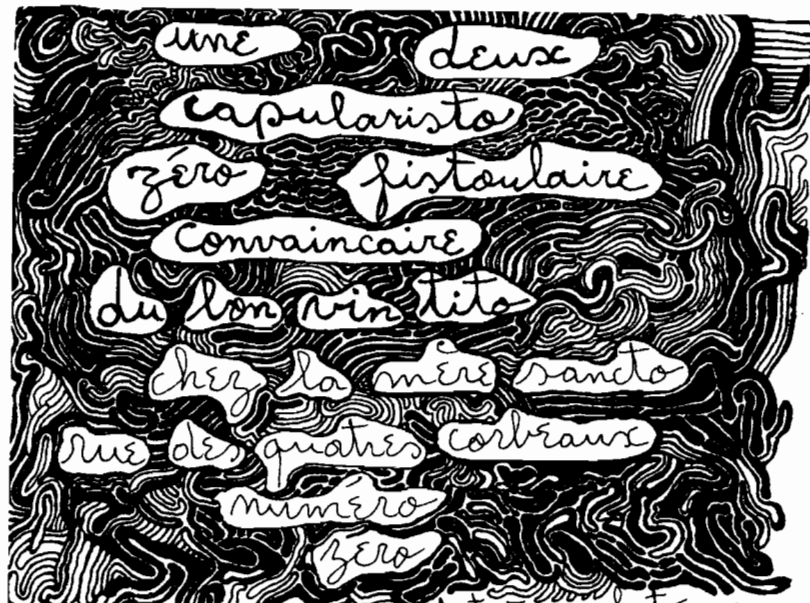 une deux
capularisto
zéro fistoulaire
convaincaire
du bon vin tito
chez la mère sancto
rue des quatres corbeaux
numéro
zéro